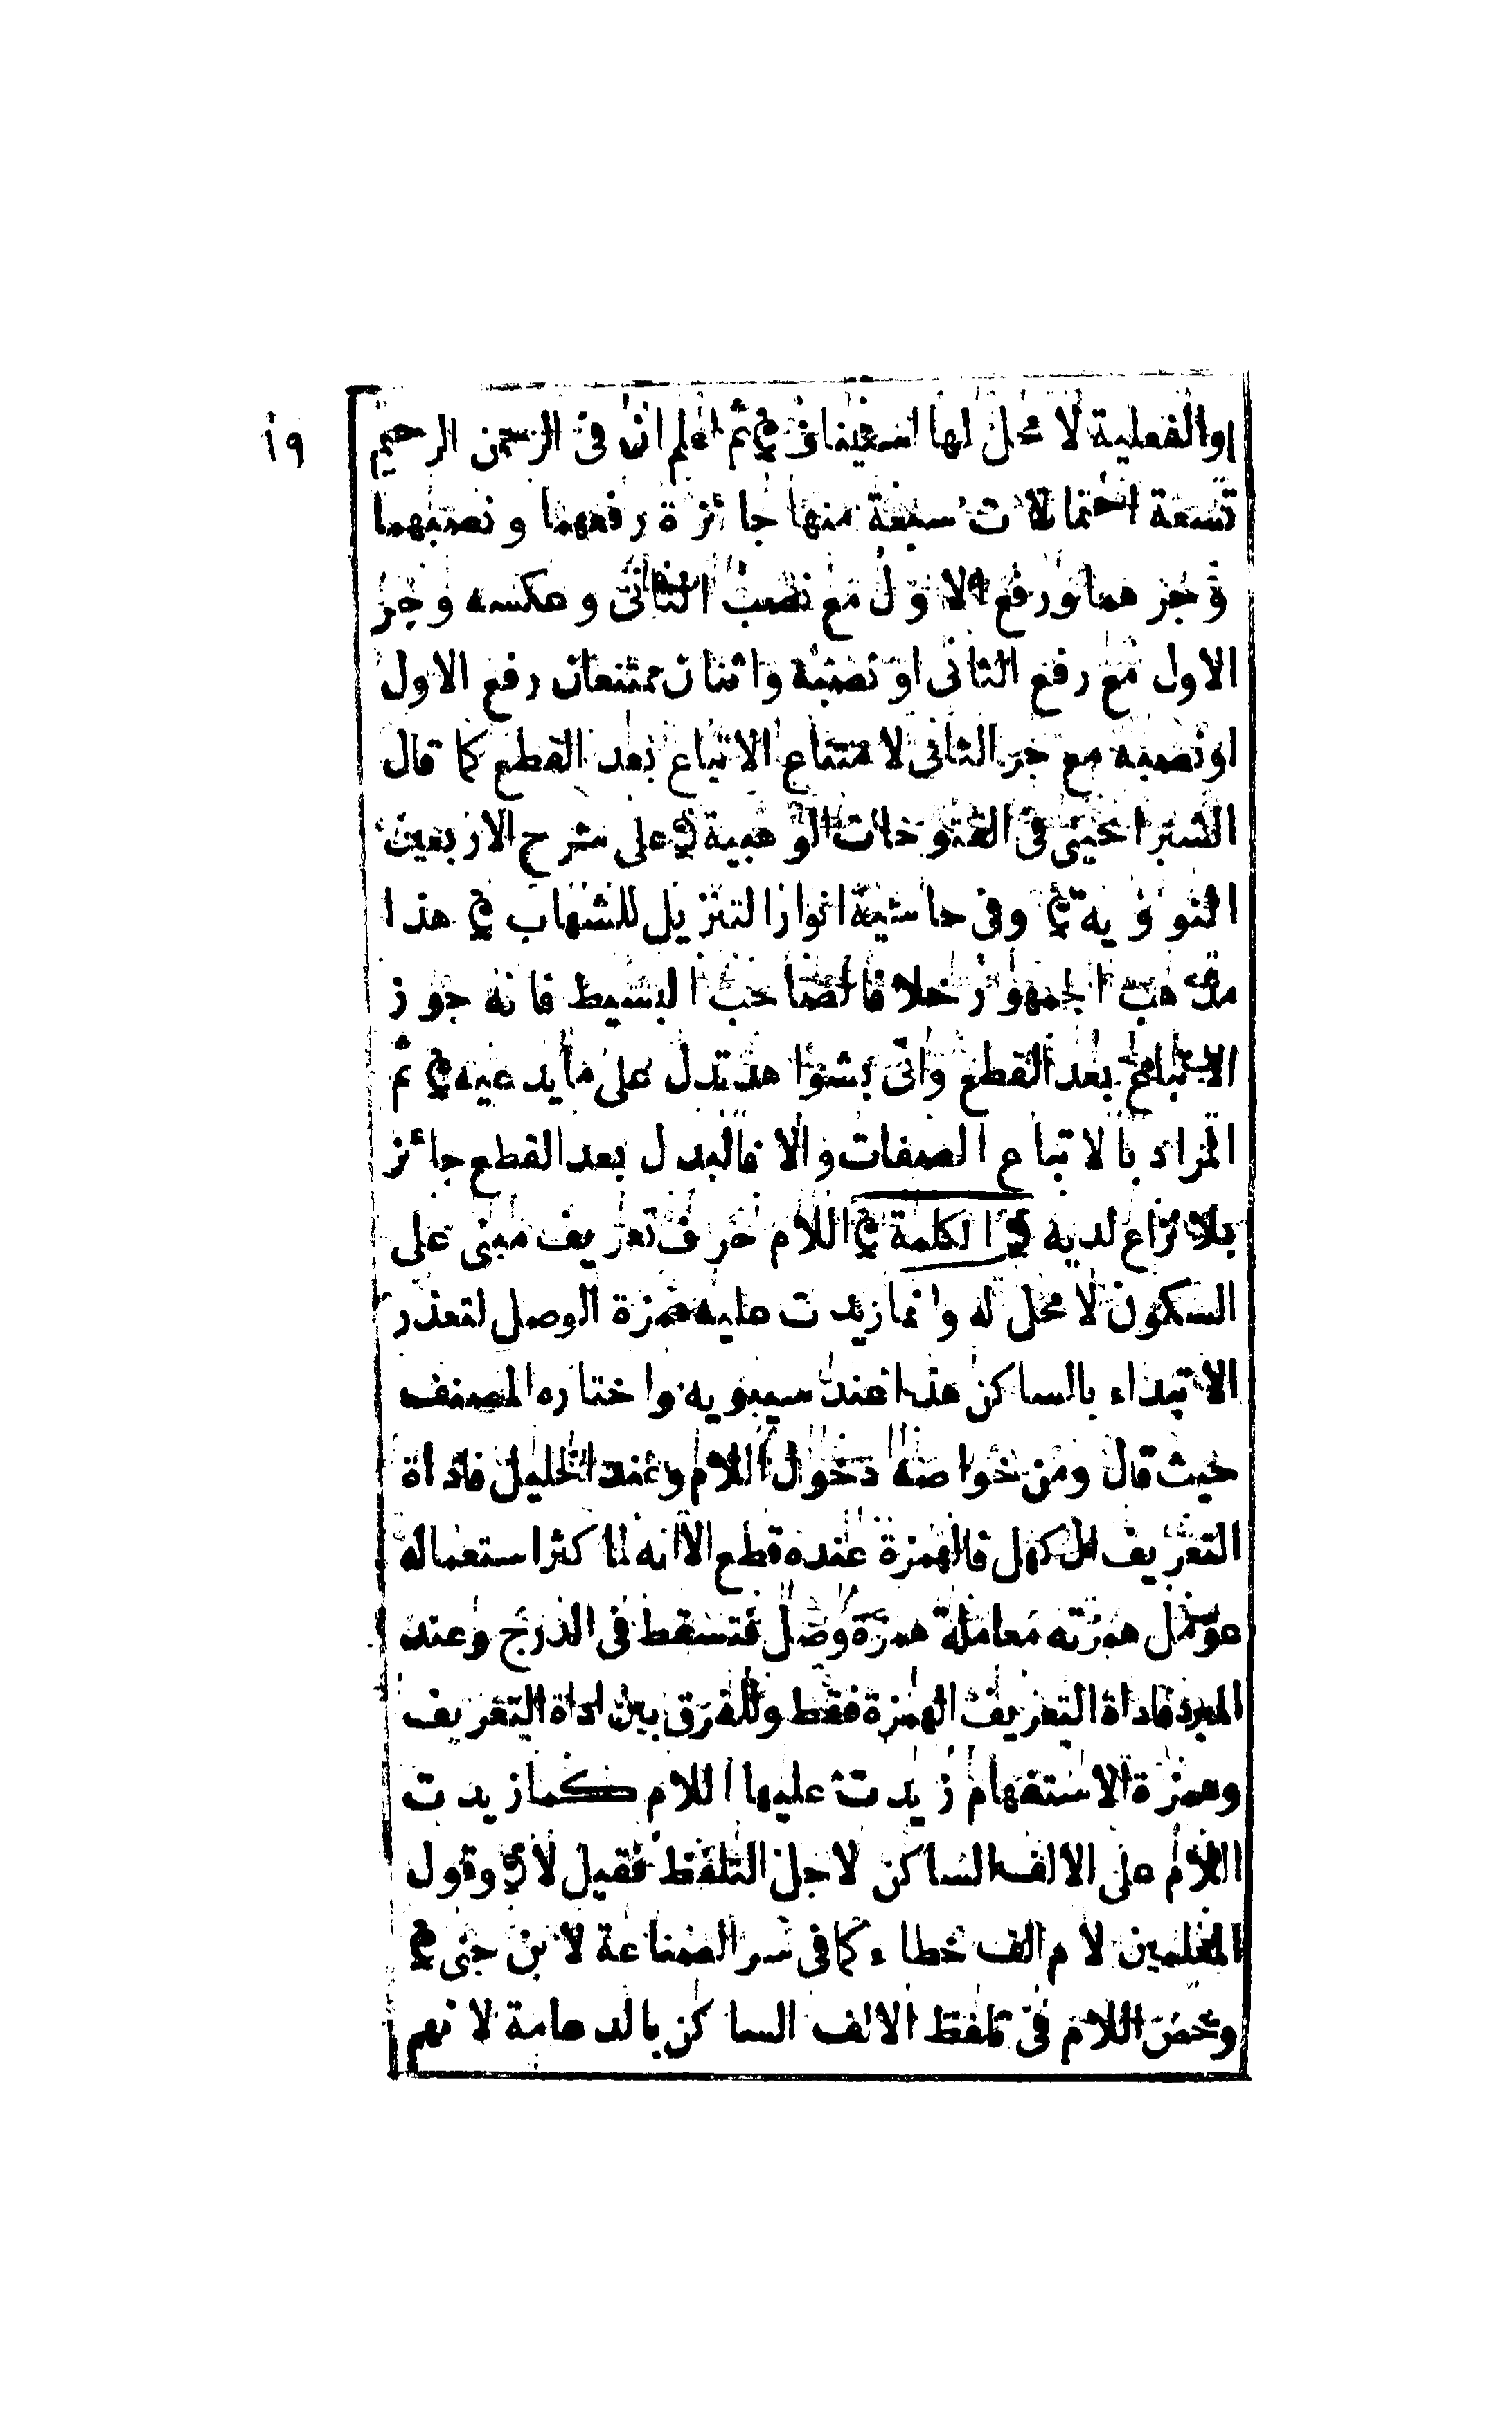 ١٩
او الفعلية لا محل لها استيناف ثم اعلم ان فى الرحمن الرحيم
تسعة احتمالات سبعة منها جائزة رفعهما ونصبهما
وجرهما ورفع الاول مع نصب الثانى وعكسه وجر
الاول مع رفع الثانى او نصبه واثنان ممتنعان رفع الاول
او نصبه مع جر الثانى لامتناع الاتباع بعد القطع كما قال
الشبراخيتى فى الفتوحات الوهبية على شرح الاربعين
النووية وفى حاشية انوار التنزيل للشهاب هذا
مذهب الجمهور خلافا لصاحب البسيط فانه جوز
الاتباع بعد القطع واتى بشواهد تدل على ما يدعيه ثم
المراد بالاتباع الصفات والا فالبدل بعد القطع جائز
بلا نزاع لديه الكلمة اللام حرف تعريف مبنى على
السكون لا محل له وانما زيدت عليه همزة الوصل لتعذر
الابتداء بالساكن هذا عند سيبويه واختاره المصنف
حيث قال ومن خواصه دخول اللام وعند الخليل فاداة
التعريف ال كهل فالهمزة عنده قطع الا انه لما كثر استعماله
عومل همزته معاملة همزة وصل فتسقط فى الدرج وعند
المبرد فاداة التعريف الهمزة فقط وللفرق بين اداة التعريف
وهمزة الاستفهام زيدت عليها اللام كما زيدت
اللام على الالف الساكن لاجل التلفظ فقيل لا وقول
المعلمين لام الف خطاء كما فى سر الصناعة لابن جنى
وخص اللام فى تلفظ الالف الساكن بالدعامة لانهم